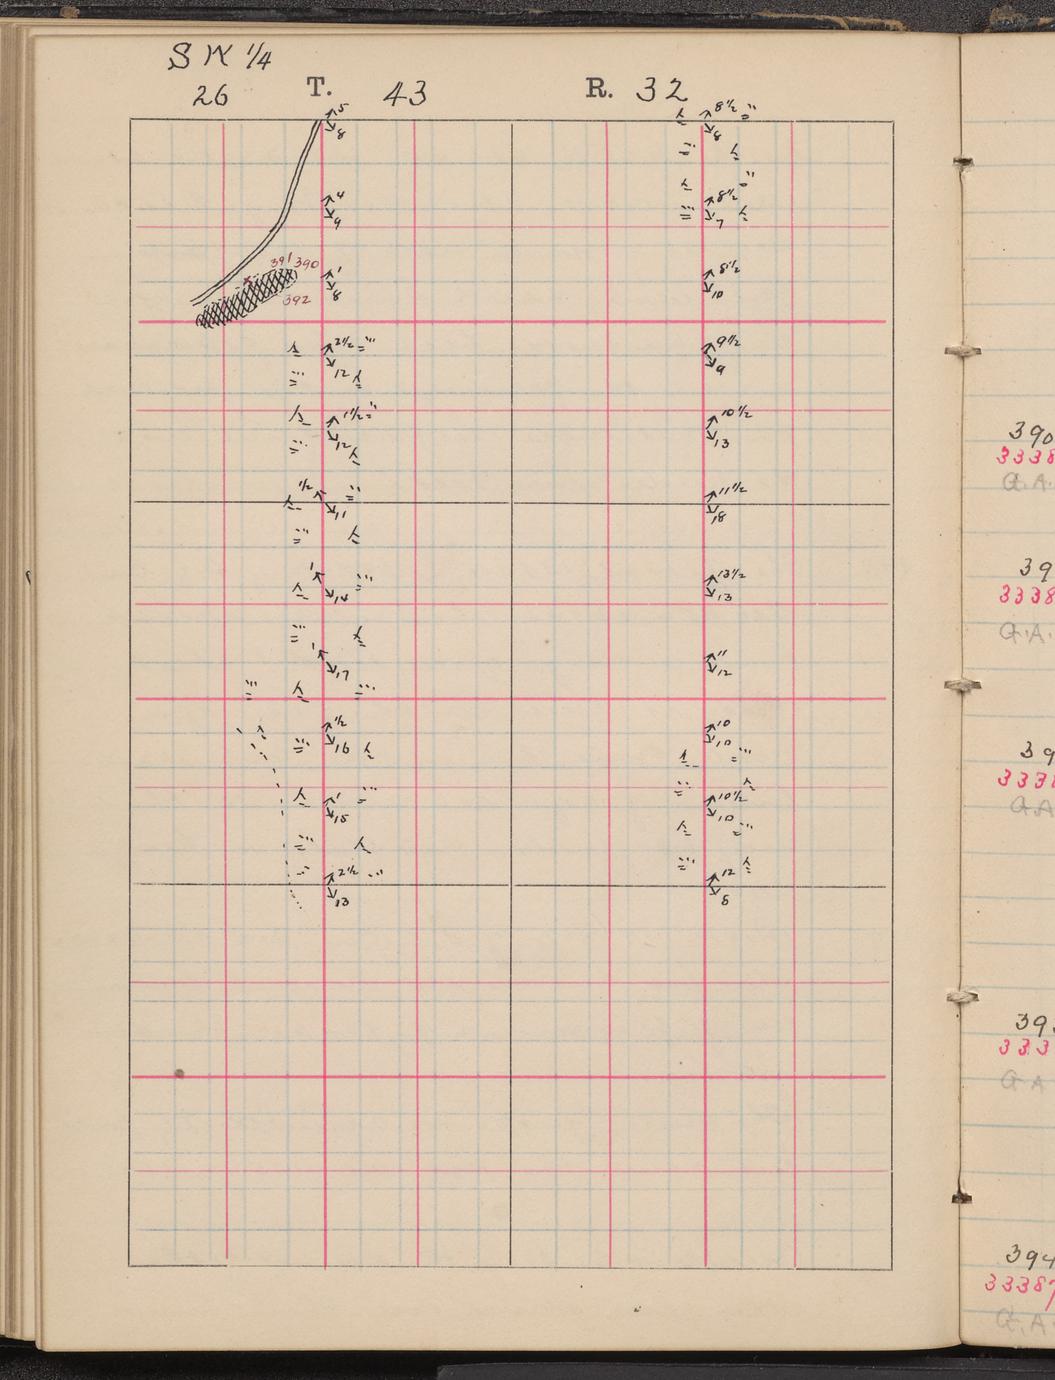 SW 1/4
26 T. 43 R. 32
5
8
4
9
391 390
1
8
392
2 1/2
12
1 1/2
12
1/2
11
1
14
1
17
1/2
16
1
15
2 1/2
13
8 1/2
8
8 1/2
7
8 1/2
10
9 1/2
9
10 1/2
13
11 1/2
18
13 1/2
13
11
12
10
10
10 1/2
10
12
8
390
3338
Q.A.
39
3338
Q.A.
39
333
Q.A
39
333
Q A
394
33387
Q.A